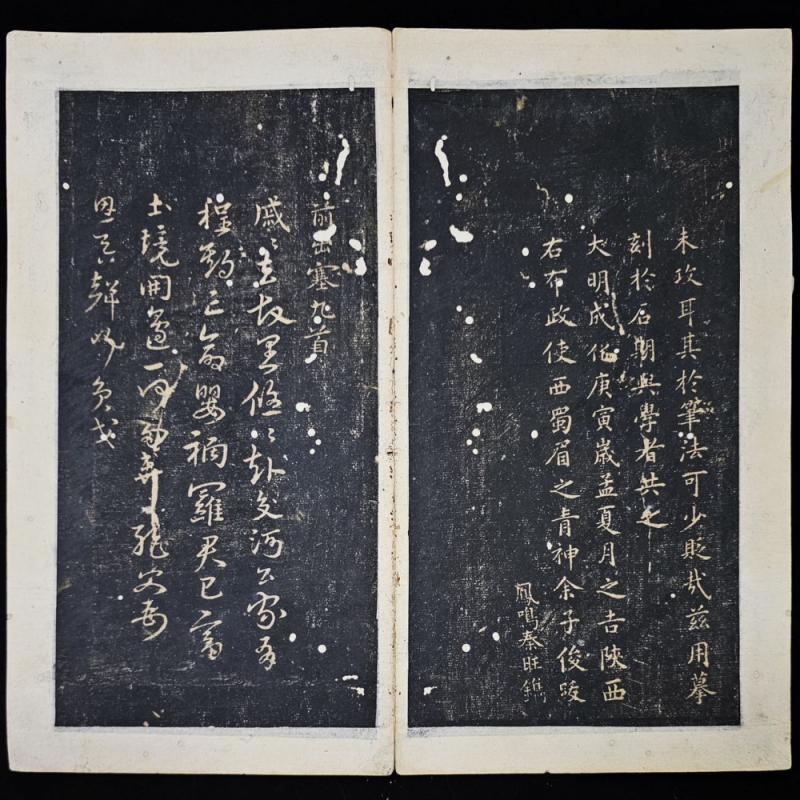 未攻耳其於筆法可少貶哉兹用摹
刻於石期與學者共之
大明成化庚寅歲孟夏月之吉陝西
右布政使西蜀眉之青神余子俊跋
鳳鳴秦旺鐫
前出塞九首
戚〻去故里悠〻赴交河公家有
程期亡命嬰禍羅君已富
土境開邊一何多棄絶父母
恩吞聲行負戈